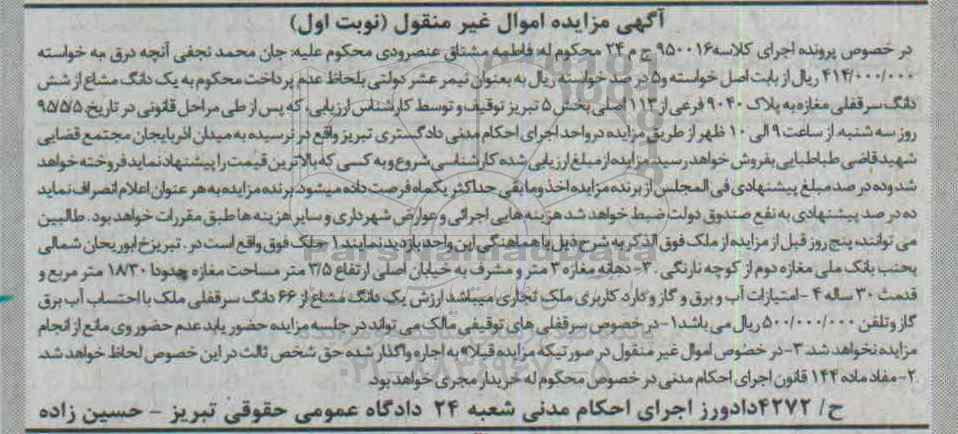 آگهی مزایده اموال غیر منقول (نوبت اول)
در خصوص پرونده اجرای کلاسه ۹۵۰۰۱۶ ج م ۲۴ محکوم له: فاطمه مشتاق عنصرودی محکوم علیه: جان محمد نجفی آنچه درق مه خواسته
۴۱۴/۰۰۰/۰۰۰ ریال از بابت اصل خواسته و۵ در صد خواسته ریال به بعنوان نیمر عشر دولتی بلحاظ عدم پرداخت محکوم به یک دانگ مشاع از شش
دانگ سرقفلی مغازه به پلاک ۹۰۴۰ فرعی از ۱۱۳ اصلی بخش ۵ تبریز توقیف و توسط کارشناس ارزیابی، که پس از طی مراحل قانونی در تاریخ ۹۵/۵/۵
روز سه شنبه، از ساعت ۹ الی ۱۰ ظهر از طریق مزایده در واحد اجرای احکام مدنی دادگستری تبریز واقع در نرسیده به میدان آذربایجان مجتمع قضایی
شهید قاضی طباطبایی بفروش خواهد رسید، مزایده از مبلغ ارزیابی شده کارشناسی شروع و به کسی که بالاترین قیمت را پیشنهاد نماید فروخته خواهد
شد و ده در صد مبلغ پیشنهادی فی المجلس از برنده مزایده اخذ و مابقی حداکثر یکماه فرصت داده میشود. برنده مزایده به هر عنوان اعلام انصراف نماید
ده در صد پیشنهادی به نفع صندوق دولت ضبط خواهد شد هزینه هایی اجرائی و عوارض شهرداری و سایر هزینه ها طبق مقررات خواهد بود. طالبین
می توانند، پنج روز قبل از مزایده از ملک فوق الذکر به شرح ذیل با هماهنگی این واحد بازدید نمایند. ۱- ملک فوق واقع است در . تبریز خ ابوریحان شمالی
بجنب بانک ملی مغازه دوم از کوچه نارنگی . ۲- دهانه مغازه ۳ متر و مشرف به خیابان اصلی ارتفاع ۳/۵ متر مساحت مغازه حدودا ۱۸/۳۰ متر مربع و
قدمت ۳۰ ساله ۴- امتیازات آب و برق و گاز و دارد کاربری ملک تجاری میباشد ارزش یک دانگ مشاع از ۶۶ دانگ سرقفلی ملک با احتساب آب برق
گاز و تلفن ۵۰۰/۰۰۰/۰۰۰ ریال می باشد ۱- در خصوص سرقفلی های توقیفی مالک می تواند در جلسه مزایده حضور یابد عدم حضور وی مانع از انجام
مزایده نخواهد شد. ۳- در خصوص اموال غیر منقول در صورتیکه مزایده قبلا» به اجاره واگذار شده حق شخص ثالث در این خصوص لحاظ خواهد شد.
۲- مفاد ماده ۱۴۴ قانون اجرای احکام مدنی در خصوص محکوم له خریدار مجری خواهد بود.
ح/ ۴۲۷۲ دادورز اجرای احکام مدنی شعبه ۲۴ دادگاه عمومی حقوقی تبریز - حسین زاده
ParsNamadData
۰۲۱-۸۸۳۴۹۶۷۰-۵